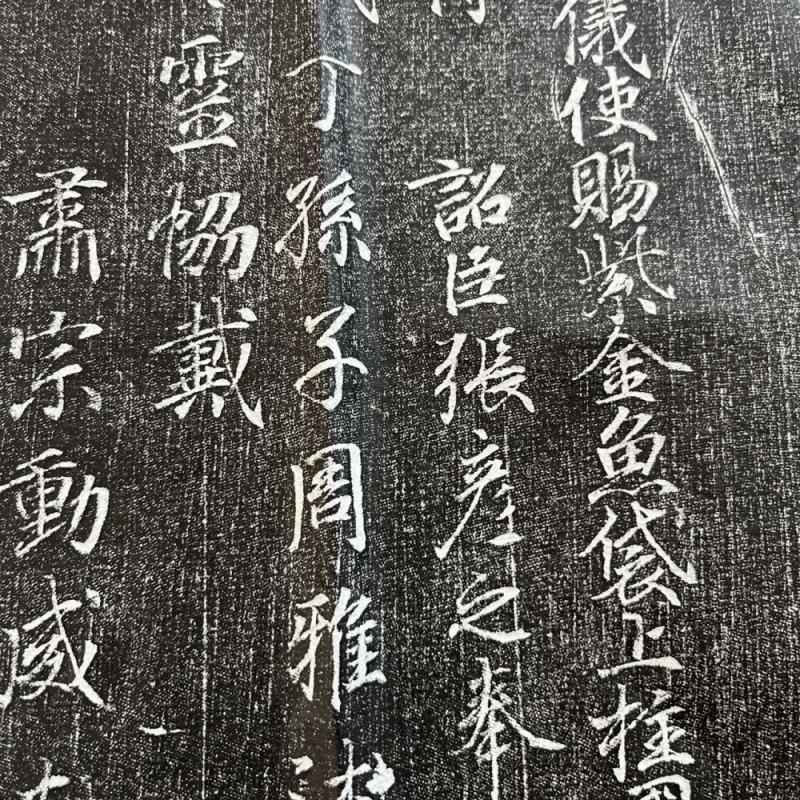 儀使賜紫金魚袋上柱
詔臣張之奉
丁孫子周雅
靈恊戴
肅宗動威